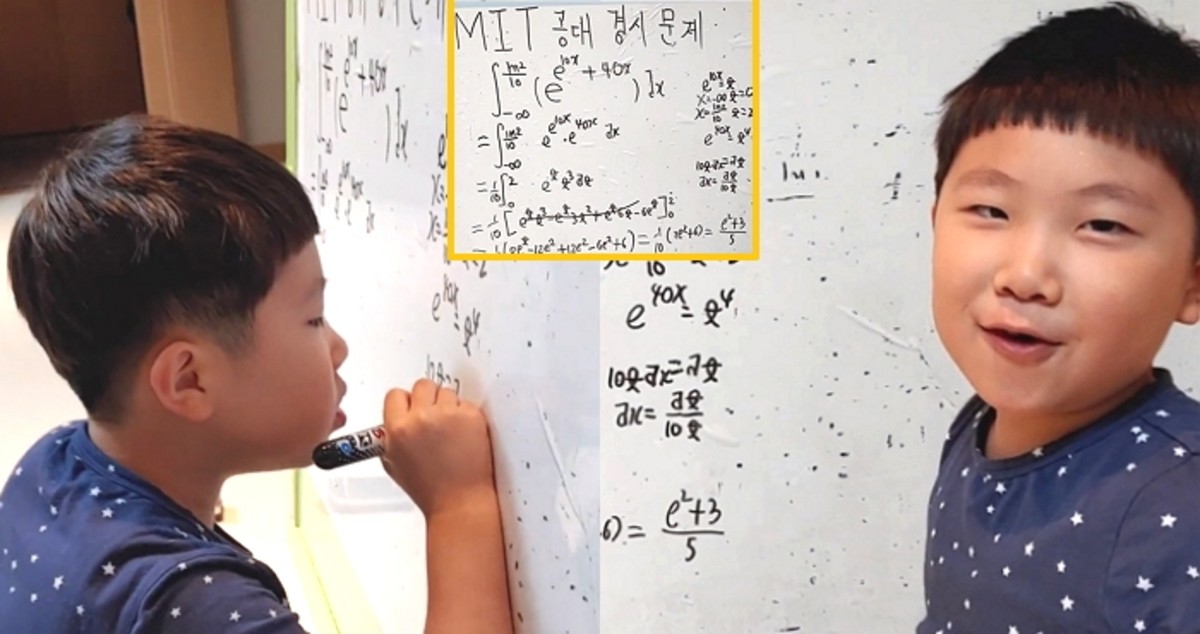 MIT 공대 경시 문제
∫_{-∞}^{ln2/10} (e^{e^{10x}+40x}) dx
= ∫_{-∞}^{ln2/10} e^{e^{10x}}·e^{40x} dx
= 1/10 ∫_0^2 e^t t^3 dt
= 1/10 [e^t t^3 - e^t 3t^2 + e^t 6t - 6e^t]_0^2
-12e^2+12e^2-6e^2+6) = 1/10 (2e^2+6) = (e^2+3)/5
e^{10x}=t
x=-∞
x=ln2/10 t=2
e^{40x}=t^4
10t dx=dt
dx=dt/10t
e^{40x}=t^4
10t dx=dt
dx=dt/10t
6) = (e^2+3)/5